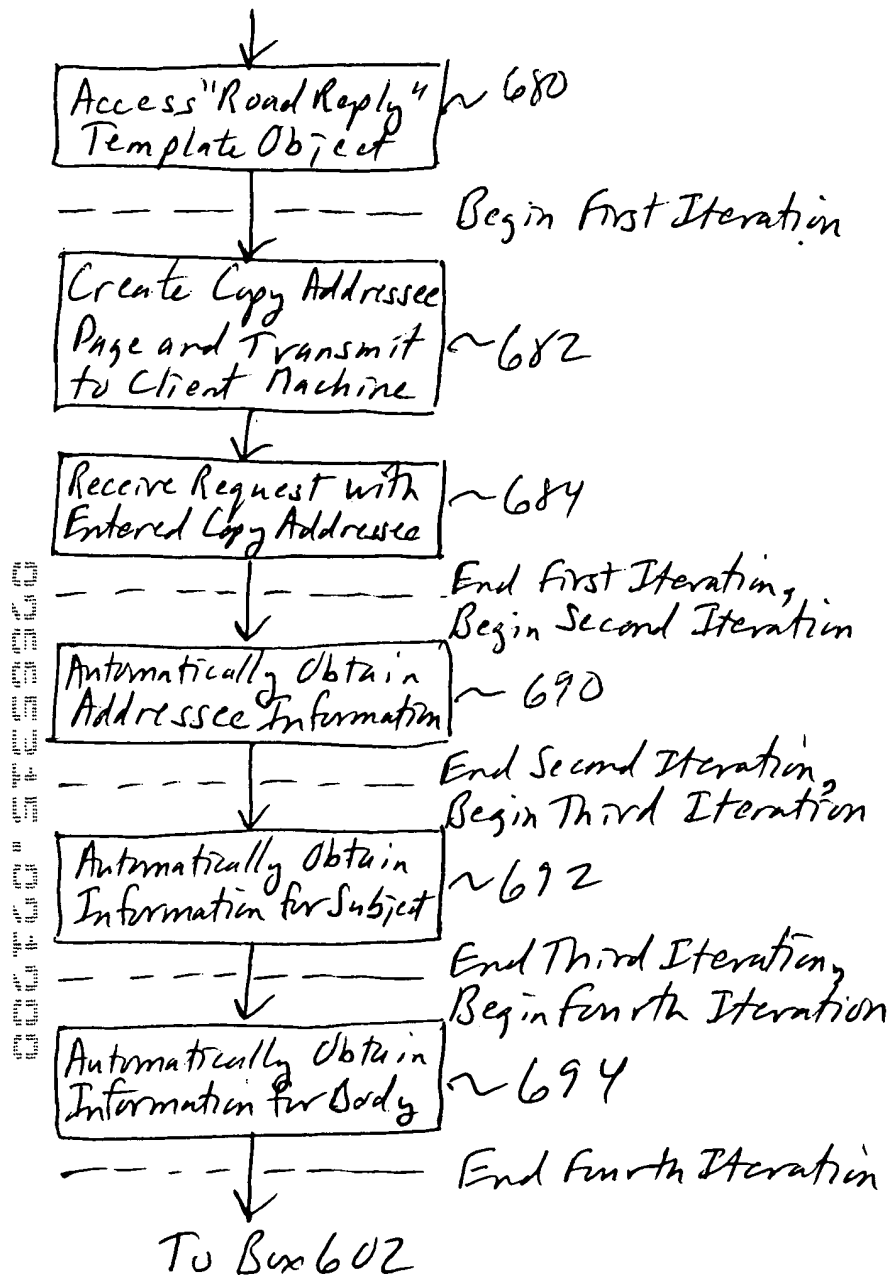 Access "Road Reply"
Template Object
~ 680
Begin First Iteration
Create Copy Addressee
Page and Transmit
to Client Machine
~ 682
Receive Request with
Entered Copy Addressee
~ 684
End First Iteration,
Begin Second Iteration
Automatically Obtain
Addressee Information
~ 690
End Second Iteration,
Begin Third Iteration
Automatically Obtain
Information for Subject
~ 692
End Third Iteration,
Begin Fourth Iteration
Automatically Obtain
Information for Body
~ 694
End Fourth Iteration
To Box 602